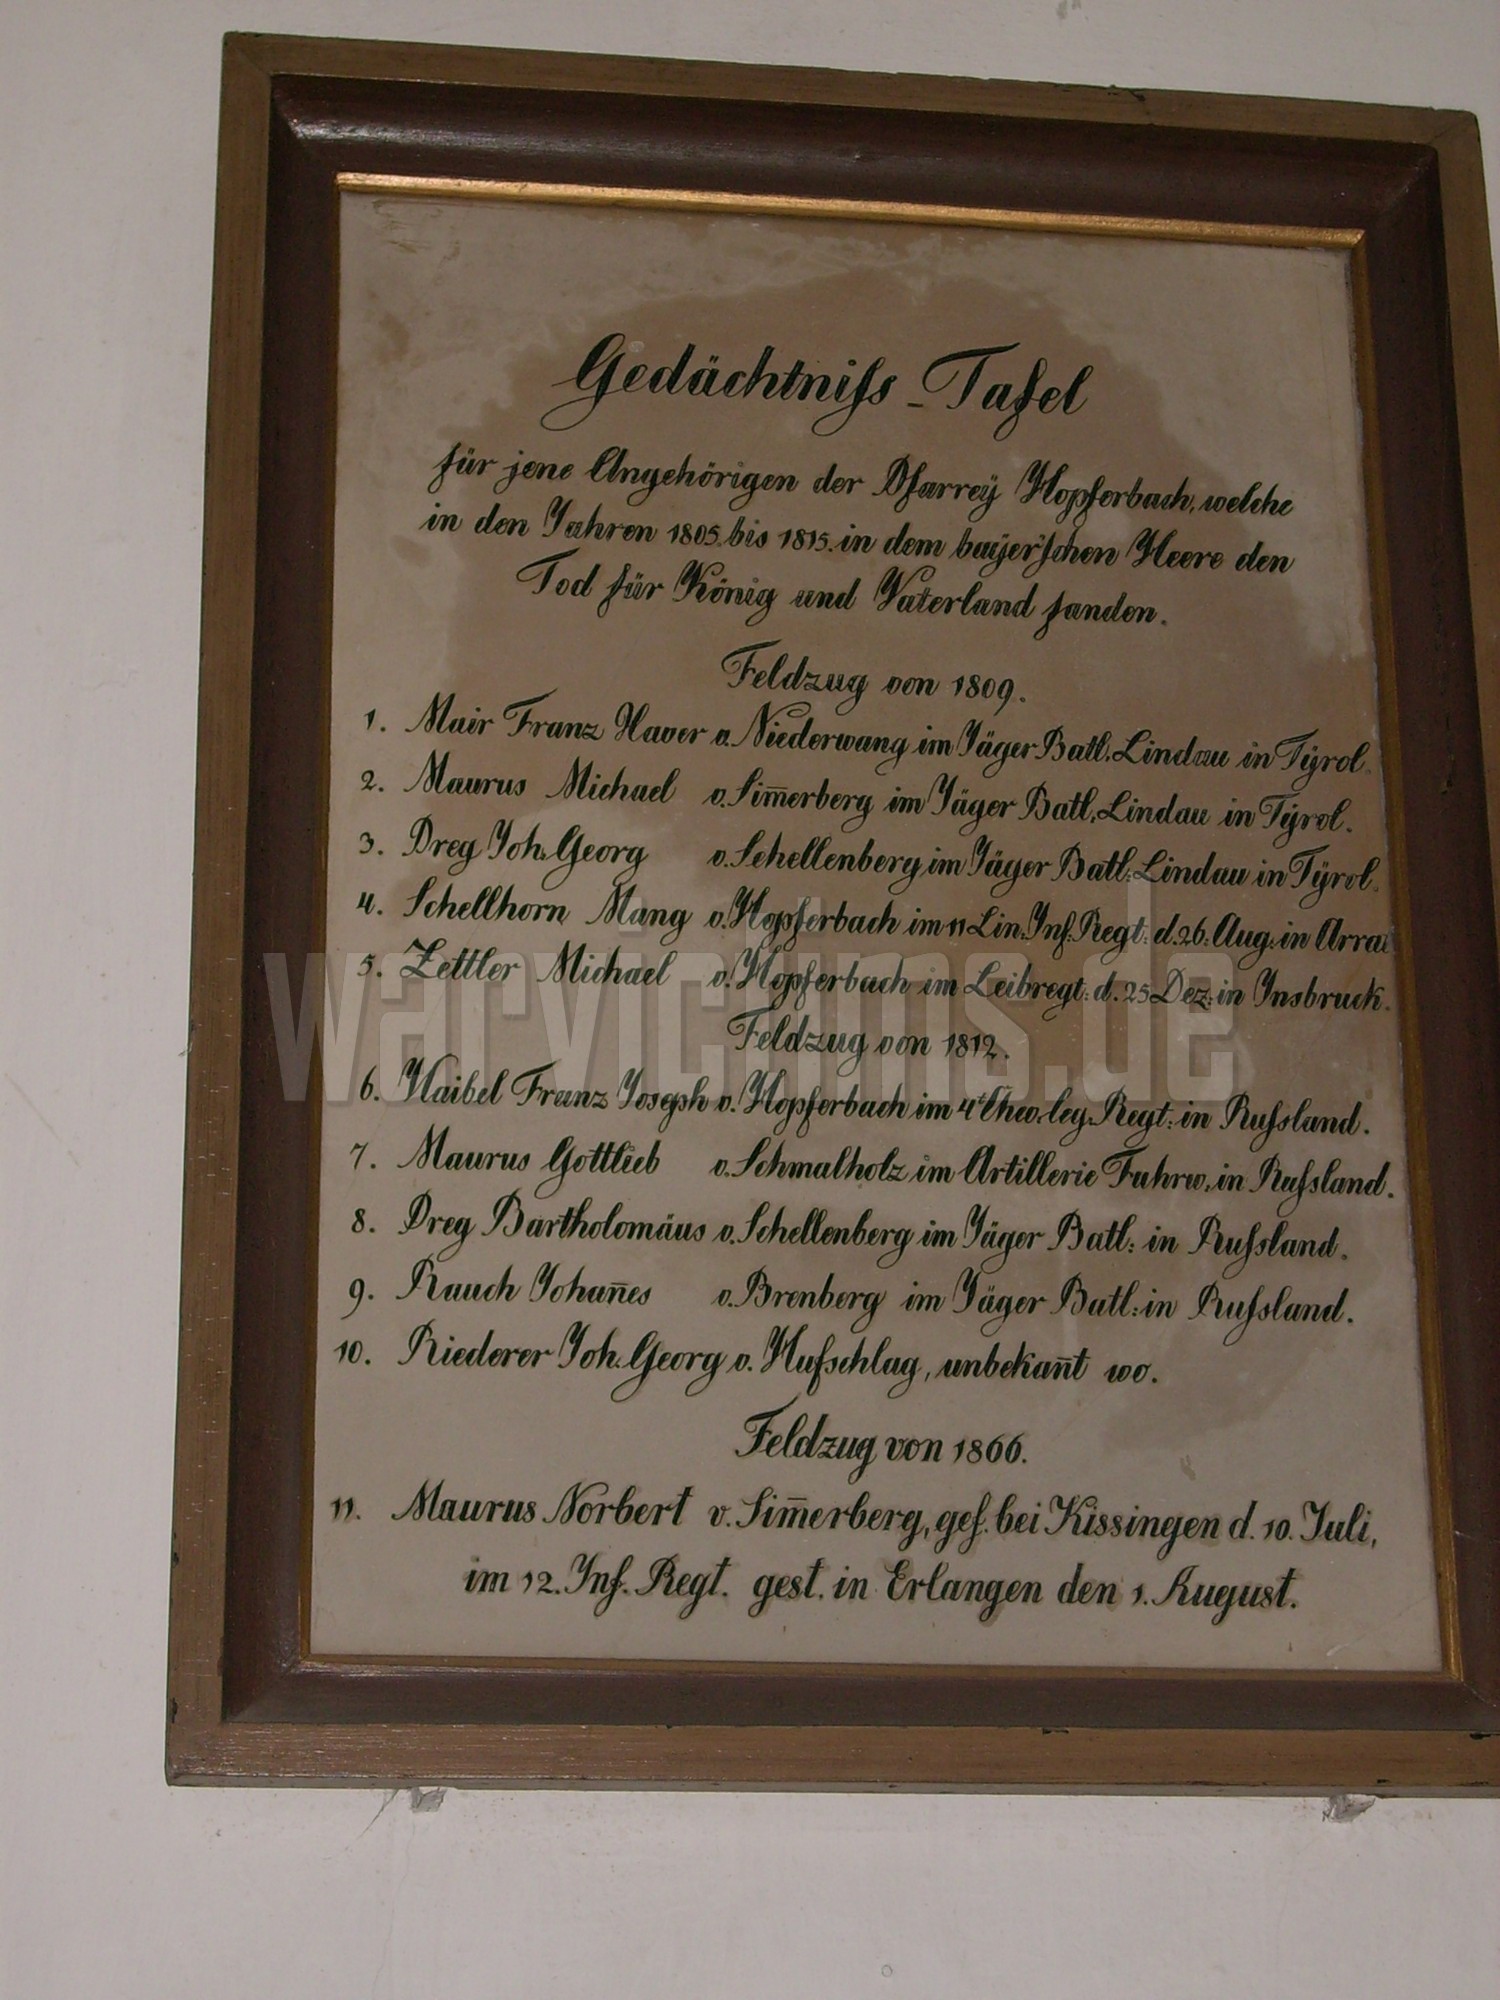 Gedächtniſs - Tafel
für jene Angehörigen der Pfarreÿ Hopferbach, welche
in den Jahren 1805. bis 1815. in dem baÿer'schen Heere den
Tod für König und Vaterland fanden.
Feldzug von 1809.
1. Mair Franz Xaver v. Niederwang im Jäger Batl. Lindau in Tÿrol.
2. Maurus Michael v. Sim̅erberg im Jäger Batl. Lindau in Tÿrol.
3. Dreg Joh. Georg v. Schellenberg im Jäger Batl: Lindau in Tÿrol.
4. Schellhorn Mang v. Hopferbach im 11 Lin. Inf. Regt: d. 26. Aug: in Arrau
5. Zettler Michael v. Hopferbach im Leibregt: d. 25 Dez: in Insbruck.
Feldzug von 1812.
6. Haibel Franz Joseph v. Hopferbach im 4t Chev. leg. Regt: in Ruſsland.
7. Maurus Gottlieb v. Schmalholz im Artillerie Fuhrw. in Ruſsland.
8. Dreg Bartholomäus v. Schellenberg im Jäger Batl: in Ruſsland.
9. Rauch Johan̅es v. Brenberg im Jäger Batl: in Ruſsland.
10. Riederer Joh. Georg v. Hufschlag, unbekan̅t wo.
Feldzug von 1866.
11. Maurus Norbert v. Sim̅erberg, gef. bei Kissingen d. 10. Juli,
im 12. Inf. Regt. gest. in Erlangen den 1. August.
warvictims.de